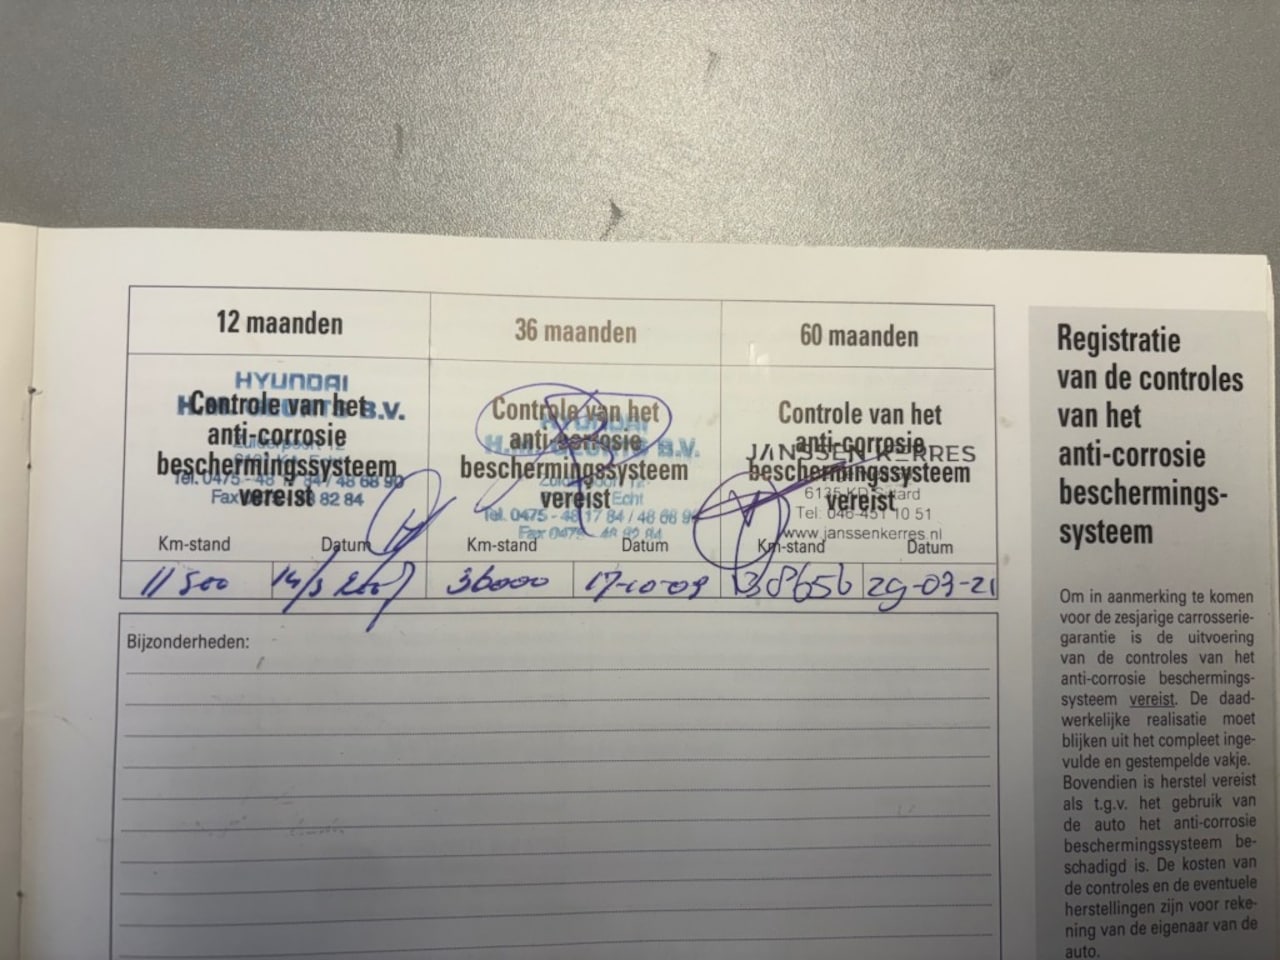 12 maanden
36 maanden
60 maanden
HYUNDAI
B.V.
Controle van het
anti-corrosie
beschermingssysteem
vereist
Tel. 0475 - 48 17 84 / 48 68 90
Fax 82 84
Km-stand Datum
11500 14/3 2007
Controle van het
anti-corrosie
beschermingssysteem
vereist
HYUNDAI
B.V.
Echt
Tel. 0475 - 48 17 84 / 48 68 9
Fax 0475 - 48 82 84
Km-stand Datum
36000 17-10-09
Controle van het
anti-corrosie
beschermingssysteem
vereist
JANSSEN KERRES
6135 KD Sittard
Tel: 046-451 10 51
www.janssenkerres.nl
Km-stand Datum
138656 29-03-21
Bijzonderheden:
Registratie
van de controles
van het
anti-corrosie
beschermings-
systeem
Om in aanmerking te komen
voor de zesjarige carrosserie-
garantie is de uitvoering
van de controles van het
anti-corrosie beschermings-
systeem vereist. De daad-
werkelijke realisatie moet
blijken uit het compleet inge-
vulde en gestempelde vakje.
Bovendien is herstel vereist
als t.g.v. het gebruik van
de auto het anti-corrosie
beschermingssysteem be-
schadigd is. De kosten van
de controles en de eventuele
herstellingen zijn voor reke-
ning van de eigenaar van de
auto.